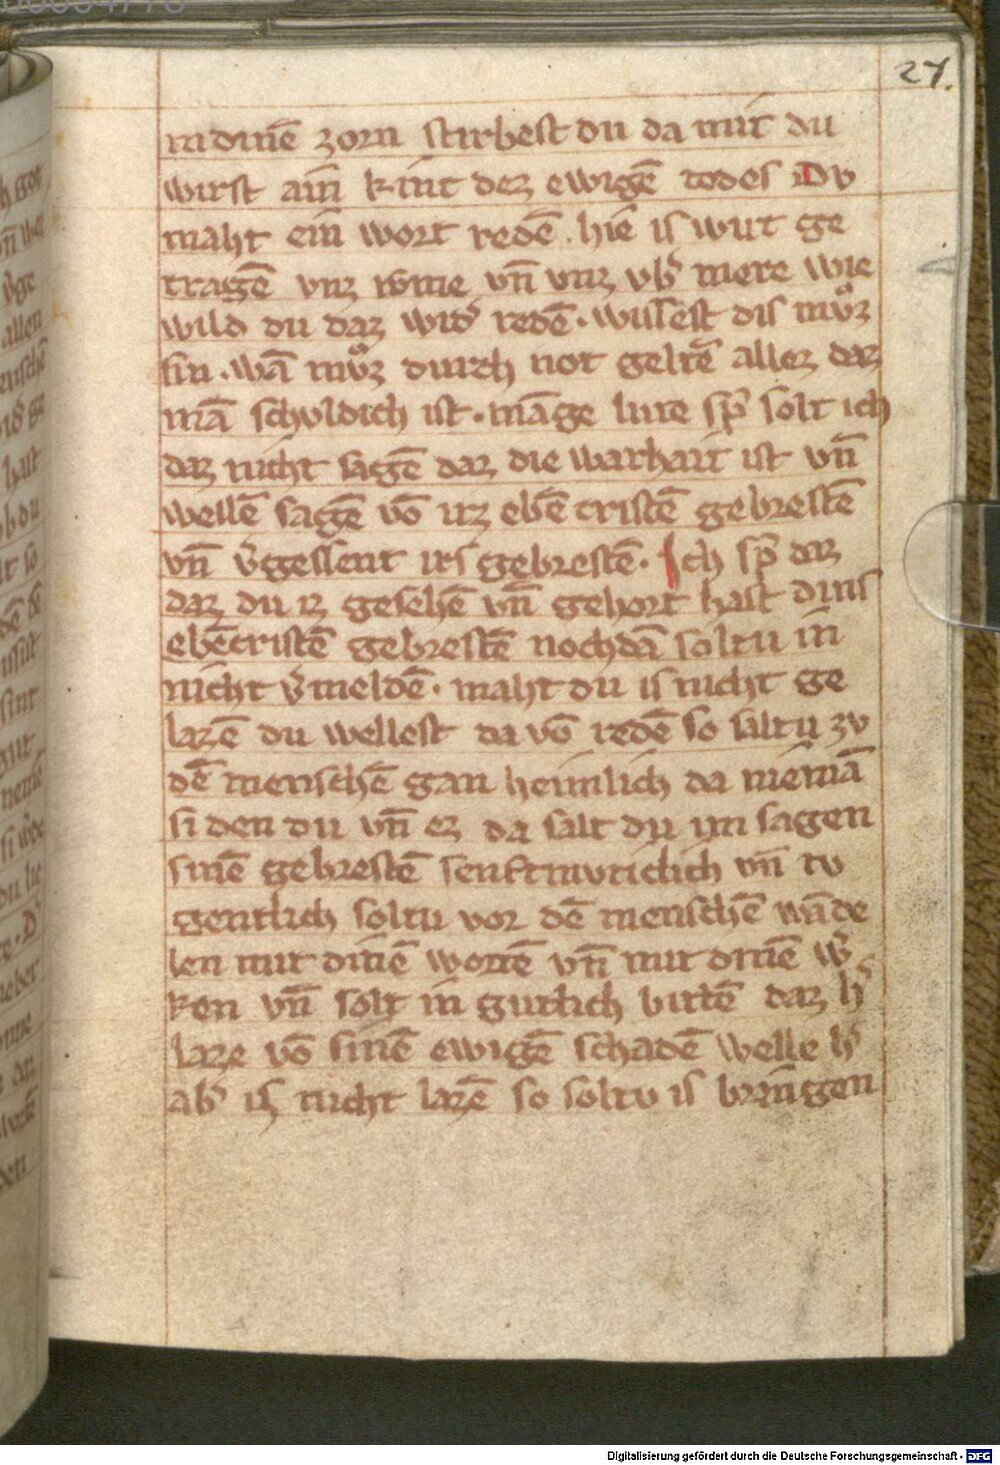 27.
in dinē zorn stirbest du da mit du
wirst ain kint dez ewigē todes Du
maht ein wort redē . hie is wirt ge
tragē vnz rome vn̄ vnz vb᷎ mere wie
wild du daz wid᷎ redē . wilest dis mvͦz
sin . wā mvͦz durch not geltē allez daz
mā schvldich ist . mānge lute sp᷎ solt ich
daz nicht sagē daz die warhait ist vn̄
wellē sagē vō irz ebē cristē gebrestē
vn̄ v᷎gessent irs gebrestē . Ich sp᷎ daz
daz du iz gesehē vn̄ gehort hast dins
ebēcristē gebrestē nochdā soltu in
nicht v᷎meldē . maht du is nicht ge
lazē du wellest da vō redē so saltu zv
dē menschē gan heimlich da niemā
si den du vn̄ ez da salt du im sagen
sinē gebrestē senftmvticlich vn̄ tv
gentlich soltu vor dē menschē wāde
len mit dinē wortē vn̄ mit dinē w᷎
ken vn̄ solt in gutlich bittē daz h᷎
laze vō sinē ewigē schadē welle h᷎
ab᷎ iz nicht lazē so soltv is bringen
Digitalisierung gefördert durch die Deutsche Forschungsgemeinschaft - DFG